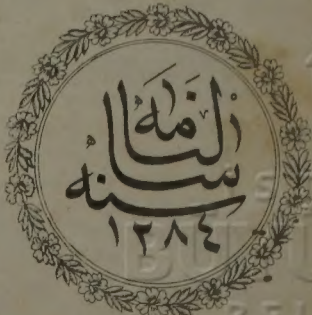 سالنامه
سنه
١٢٨٤